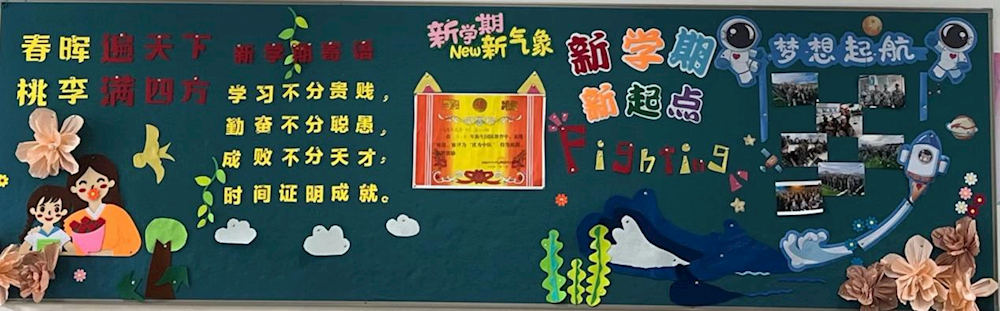 春晖遍天下
桃李满四方
新学期寄语
学习不分贵贱，
勤奋不分聪愚，
成败不分天才，
时间证明成就。
新学期
New新气象
新学期
新起点
Fighting
梦想起航